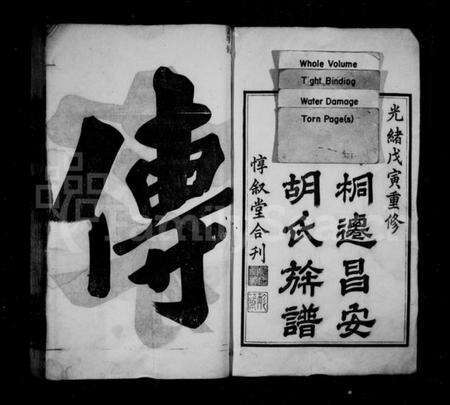 Whole Volume
Tight Binding
Water Damage
Torn Page(s)
光緒戊寅重修
桐邊昌安
胡氏族譜
惇叙堂合刊
傳